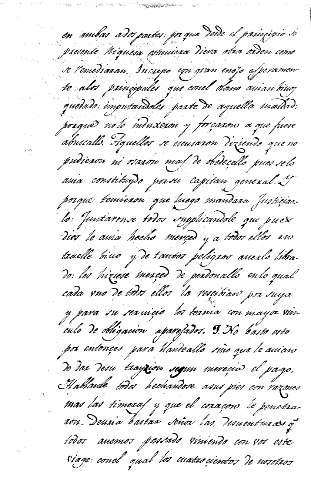 en ambas ados partes, porque desde el prinzipio si
presente hiziera primiera diera otra orden como
se remediaran. Increpo con gran enojo asperamen-
te alos principales que con el tirano avian
quedado: imputandoles parte de aquella maldad:
porque no lo induxeran y forçaron a que fuese
obedecello. Aquellos se escusaron diziendo que no
pudieron ni osaron mas de obedecello pues solo
avia constituydo por su capitan general. Y
porque temieron que luego mandara Justicia-
lo: Juntaronse todos suplicandole que pues
dios le avia hecho merced y a todos ellos en
traelle bivo y de tantos peligros averlo libra-
do: los hiziese merced de perdonallo en lo qual
cada uno de todos ellos la rescibirian por suya
y para su servizio los ternia con mayor vin-
culo de obligacion aparejados. No basto esto
por entonces para blandeallo sino que le avian
de dar de su traycion segun merecia el pago.
Hablaronle todos hechandose a sus pies con razones
mas las timeras y que el coraçon le penetra-
ron. Devria bastar Señor las desventuras q
todos avemos passado viniendo con vos este
viage: con el qual los cuatrocientos de nosotros